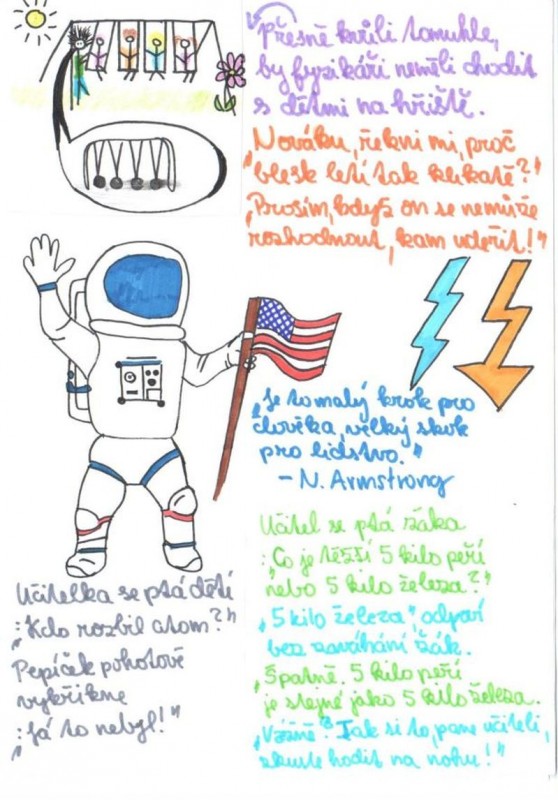 Přesně kvůli tomuhle,
by fyzikáři neměli chodit
s dětmi na hřiště.
„Nováku, řekni mi, proč
blesk letí tak klikatě?“
„Prosím, když on se nemůže
rozhodnout, kam udeřit!“
„Je to malý krok pro
člověka, velký skok
pro lidstvo.“
- N. Armstrong
Učitel se ptá žáka
:„Co je těžší 5 kilo peří
nebo 5 kilo železa?“
„5 kilo železa“, odpoví
bez zaváhání žák.
„Špatně. 5 kilo peří
je stejné jako 5 kilo železa.
„Vážně? Tak si to, pane učiteli,
zkuste hodit na nohu!“
Učitelka se ptá dětí
:„Kdo rozbil atom?“
Pepíček pohotově
vykřikne
:„Já to nebyl!“